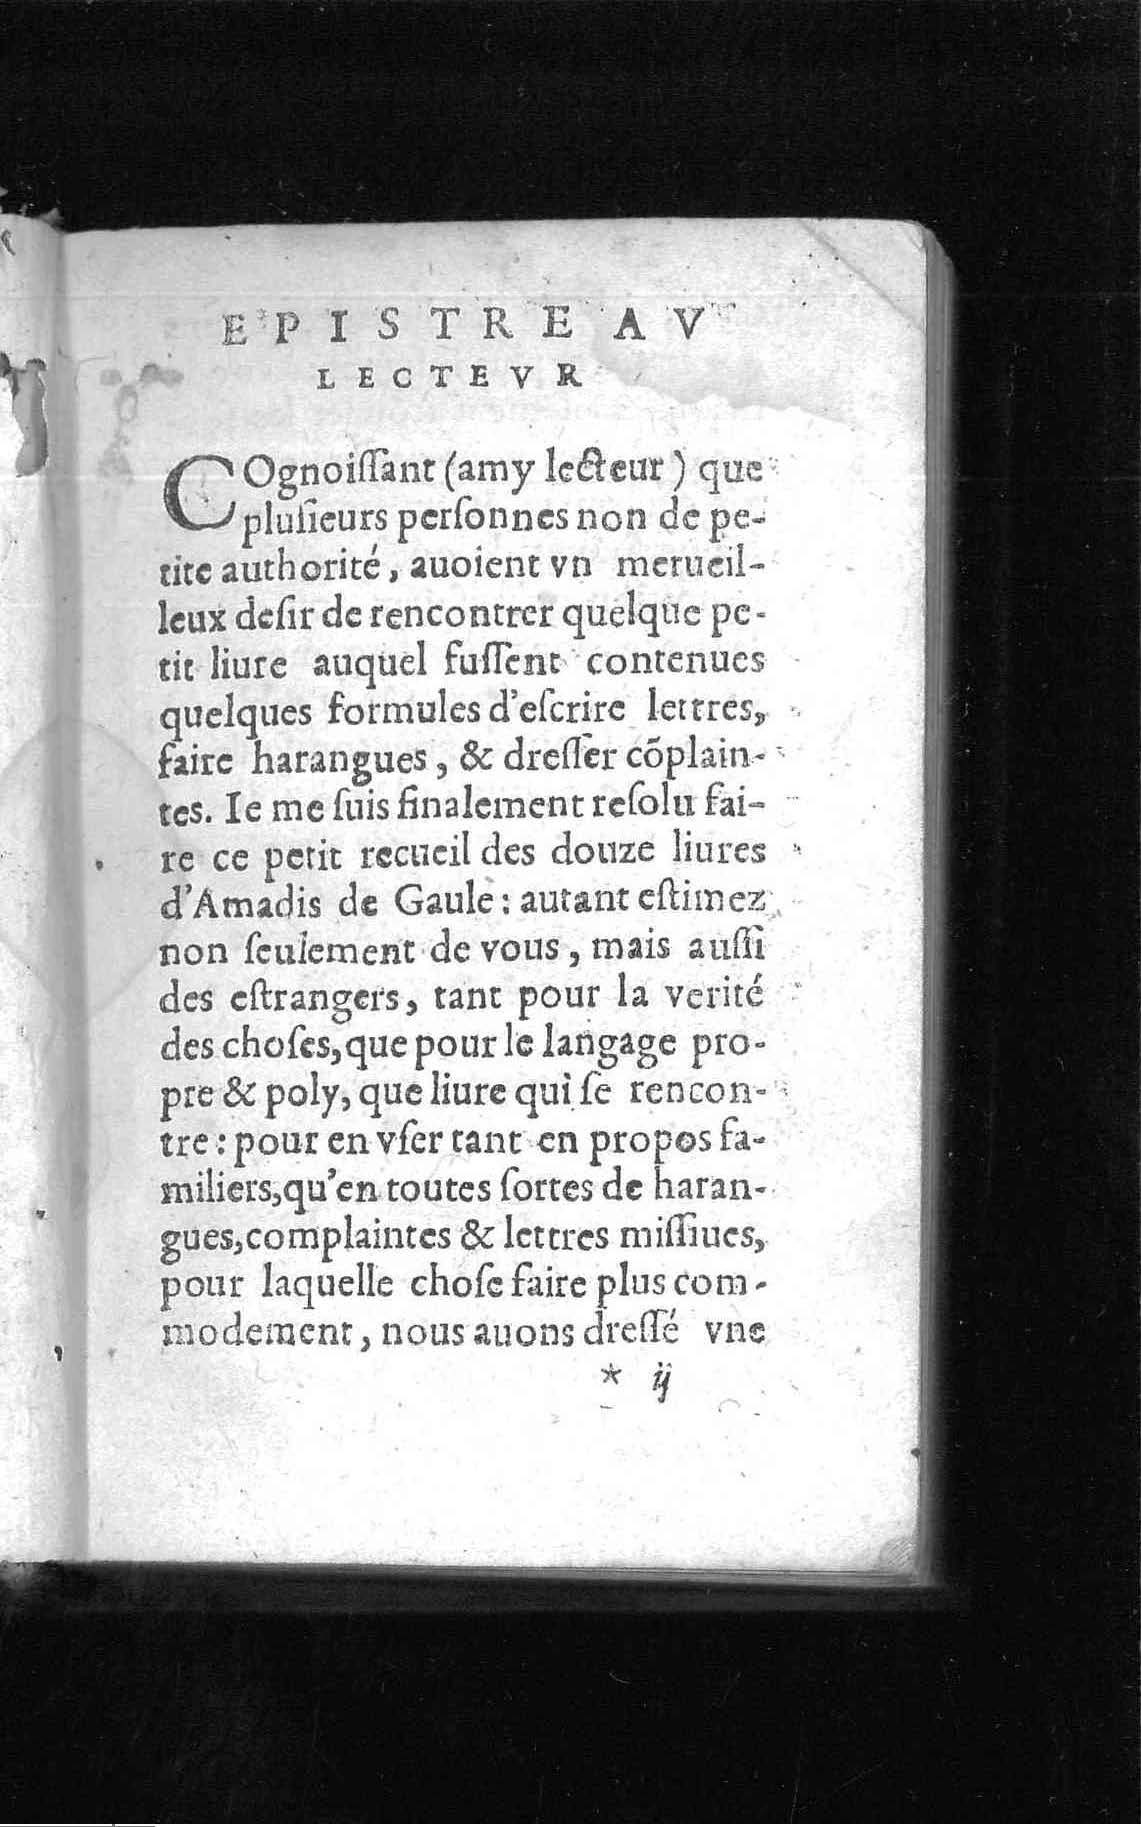 EPISTRE AV
LECTEVR
COgnoiſſant (amy lecteur) que
pluſieurs perſonnes non de pe-
tite authorité, auoient vn merueil-
leux deſir de rencontrer quelque pe-
tit liure auquel fuſſent contenues
quelques formules d'eſcrire lettres,
faire harangues, & dreſſer cõplain-
tes. Ie me ſuis finalement reſolu fai-
re ce petit recueil des douze liures
d'Amadis de Gaule: autant eſtimez
non ſeulement de vous, mais auſſi
des eſtrangers, tant pour la verité
des choſes, que pour le langage pro-
pre & poly, que liure qui ſe rencon-
tre: pour en vſer tant en propos fa-
miliers, qu'en toutes ſortes de haran-
gues, complaintes & lettres miſſiues,
pour laquelle choſe faire plus com-
modement, nous auons dreſſé vne
* ij